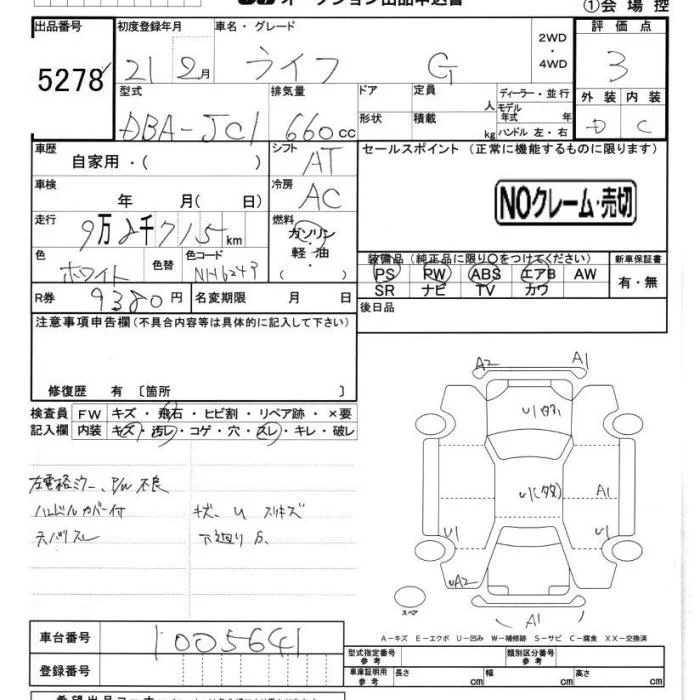 オークション出品申込書 ①会場控
出品番号 初度登録年月 車名・グレード 2WD・4WD 評価点
5278 21 2月 ライフ G 3
型式 排気量 ドア 定員 人 ディーラー・並行 外装 内装
DBA-JC1 660cc 形状 積載 kg モデル年式 年 ハンドル 左・右 D C
車歴 自家用・( ) シフト AT セールスポイント (正常に機能するものに限ります)
車検 年 月( 日) 冷房 AC
NOクレーム・売切
走行 9万2千715km 燃料 ガソリン・軽油 ( )
色 ホワイト 色替 色コード NH624J
装備品 (純正品に限り○をつけてください) 新車保証書
PS PW ABS エアB AW 有・無
SR ナビ TV カワ
R券 9380円 名変期限 月 日 後日品
注意事項申告欄 (不具合内容等は具体的に記入して下さい)
修復歴 有 〔箇所 〕
検査員 FW キズ・飛石・ヒビ割・リペア跡・×要
記入欄 内装 キズ・汚レ・コゲ・穴・スレ・キレ・破レ
左電格ミラー、P/W不良
ハンドルカバー付 キズ、U スリキズ
天バリスレ 下廻りS
A2 A1
U1
U1 A1
U1 U1
UA2
A1
スペア
A-キズ E-エクボ U-凹み W-補修跡 S-サビ C-腐食 XX-交換済
車台番号 1005641
登録番号
型式指定番号 参考 類別区分番号 参考
車庫証明用 参考 長さ cm 幅 cm 高さ cm
希望出品コーナー